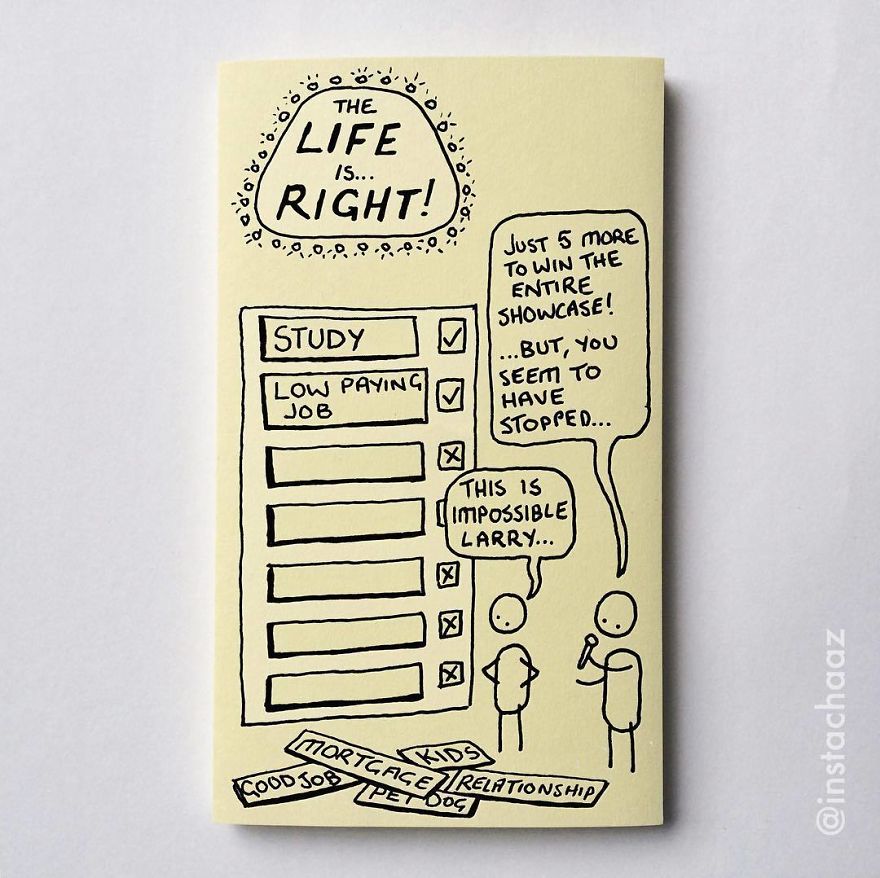 THE
LIFE
IS...
RIGHT!
JUST 5 MORE
TO WIN THE
ENTIRE
SHOWCASE!
...BUT, YOU
SEEM TO
HAVE
STOPPED...
STUDY
LOW PAYING
JOB
THIS IS
IMPOSSIBLE
LARRY...
MORTGAGE
KIDS
GOOD JOB
RELATIONSHIP
PET DOG
@instachaaz